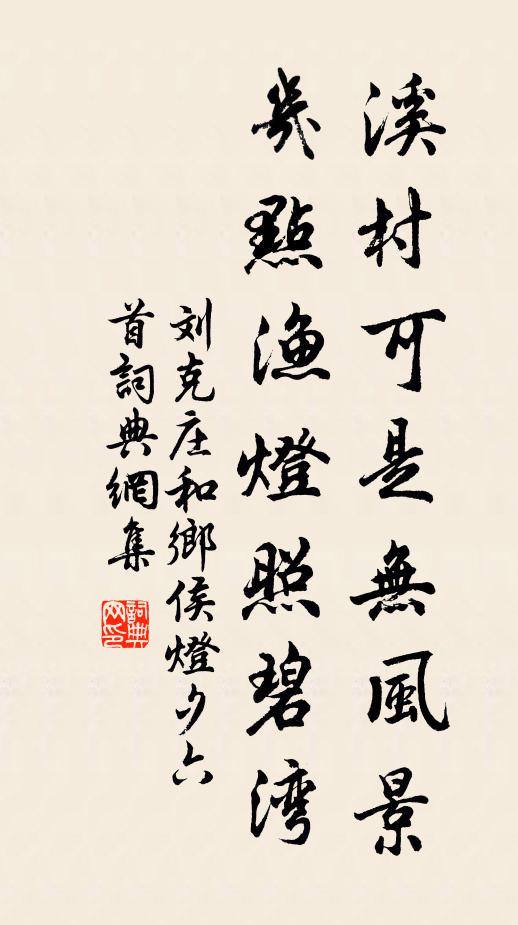 溪村可是無風景
幾點漁燈照碧湾
刘克庄和鄉侯燈夕六
首詞典網集
詞典网印